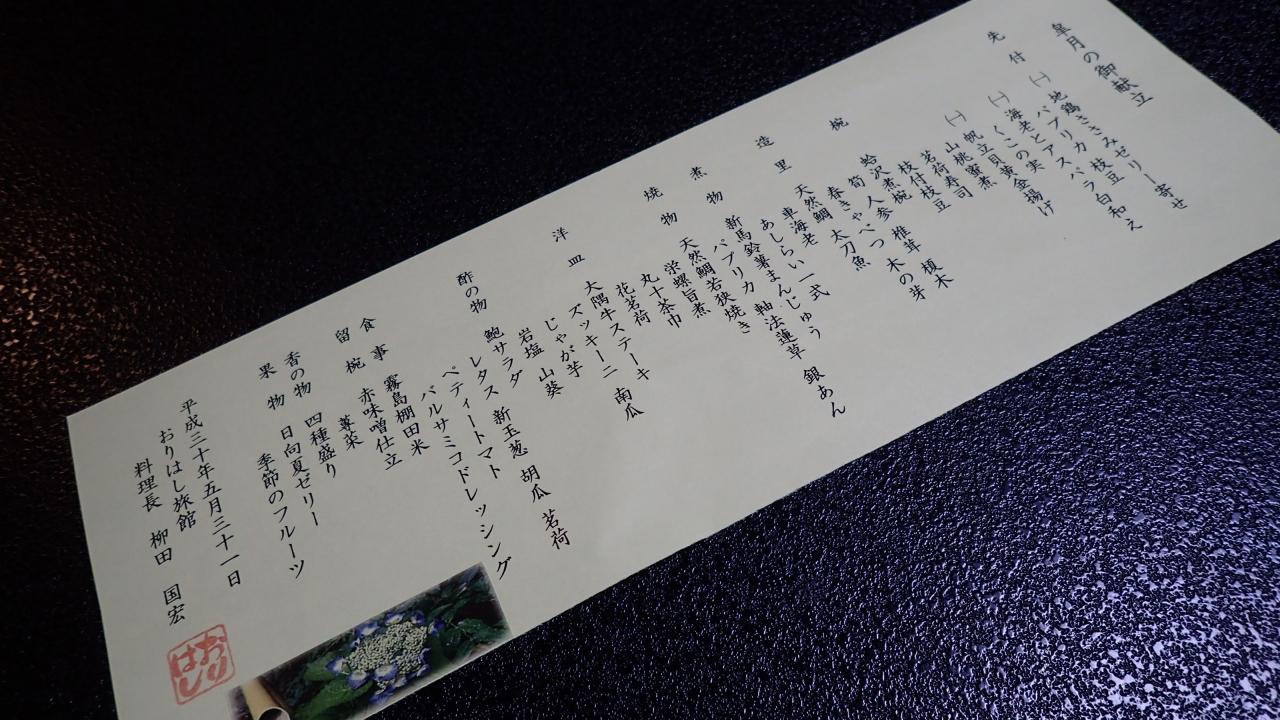 皐月の御献立
先付 (一) 地鶏ささみゼリー寄せ
パプリカ 枝豆
(一) 海老とアスパラ白和え
くこの実
(一) 帆立貝黄金揚げ
山桃蜜煮
茗荷寿司
枝付枝豆
椀 蛤沢煮椀
筍 人参 椎茸 榎木
春きゃべつ 木の芽
造里 天然鯛 太刀魚
車海老
あしらい一式
煮物 新馬鈴薯まんじゅう
パプリカ 軸法蓮草 銀あん
焼物 天然鯛若狭焼き
栄螺旨煮
丸十茶巾
花茗荷
洋皿 大隅牛ステーキ
ズッキーニ 南瓜
じゃが芋
岩塩 山葵
酢の物 鮑サラダ
レタス 新玉葱 胡瓜 茗荷
ペティートマト
バルサミコドレッシング
食事 霧島棚田米
留椀 赤味噌仕立
蓴菜
香の物 四種盛り
果物 日向夏ゼリー
季節のフルーツ
平成三十年五月三十一日
おりはし旅館
料理長 柳田 国宏
おりはし